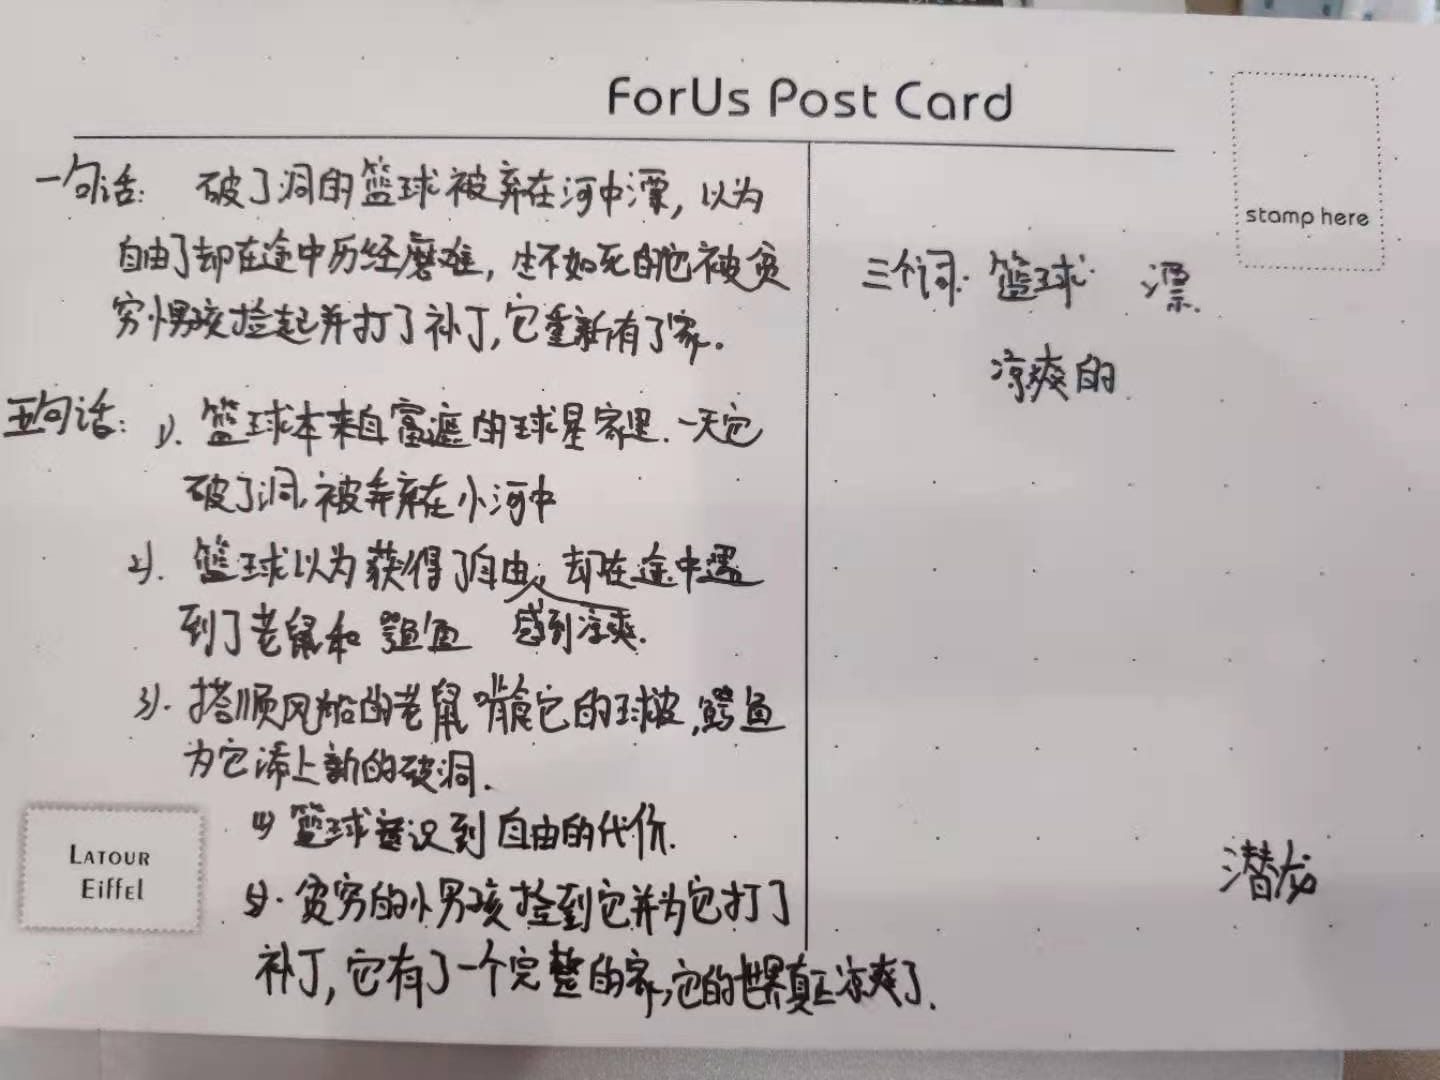 ForUs Post Card
stamp here
一句话: 破了洞的篮球被弃在河中漂, 以为
自由了却在途中历经磨难, 生不如死的它被贫
穷男孩捡起并打了补丁, 它重新有了家.
五句话: 1). 篮球本来自富裕的球星家里. 一天它
破了洞, 被弃在小河中
2). 篮球以为获得了自由, 却在途中遇
到了老鼠和鳄鱼 感到凉爽.
3). 搭顺风船的老鼠啃食它的球皮, 鳄鱼
为它添上新的破洞.
4) 篮球意识到自由的代价.
5). 贫穷的小男孩捡到它并为它打了
补丁, 它有了一个完整的家, 它的世界真正凉爽了.
三个词: 篮球 漂
凉爽的
潜龙
LATOUR
Eiffel